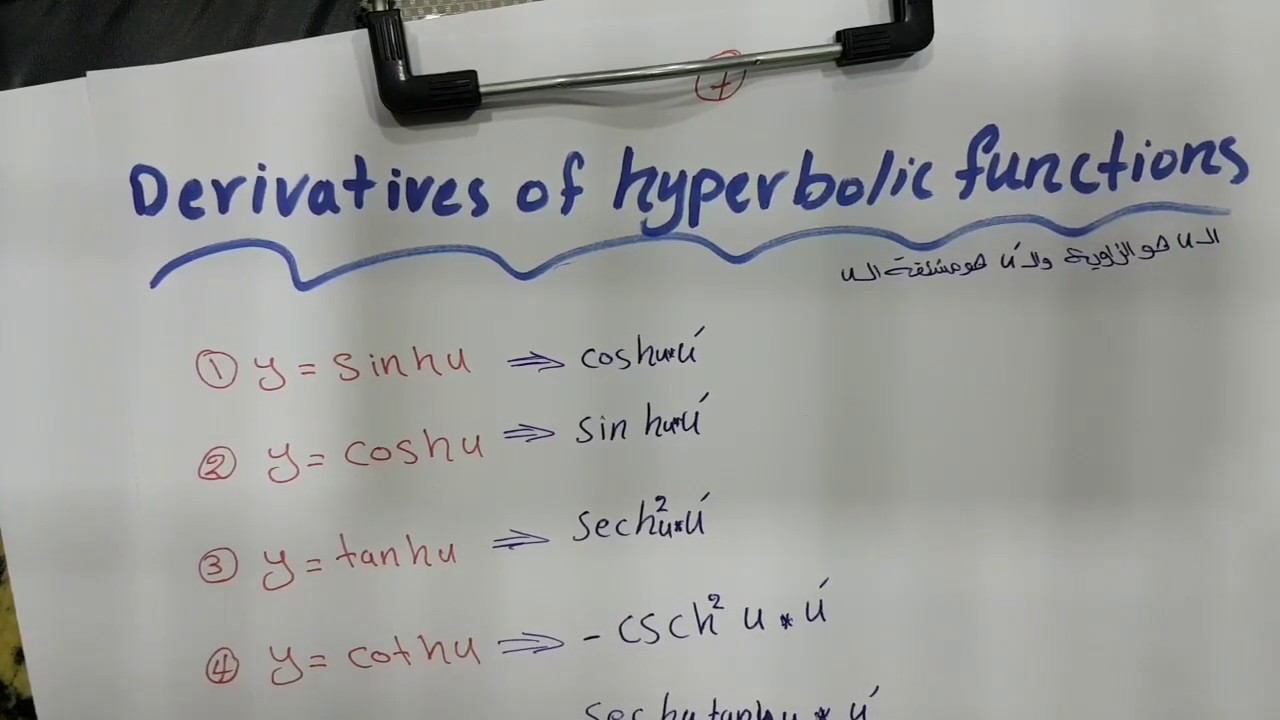 +
Derivatives of hyperbolic functions
الـ u هو الزاوية والـ u' هو مشتقة الـ u
① y = sinhu ⇒ coshu*u'
② y = coshu ⇒ sinhu*u'
③ y = tanhu ⇒ sech²u*u'
④ y = cothu ⇒ - csch² u * u'
sechu tanhu * u'